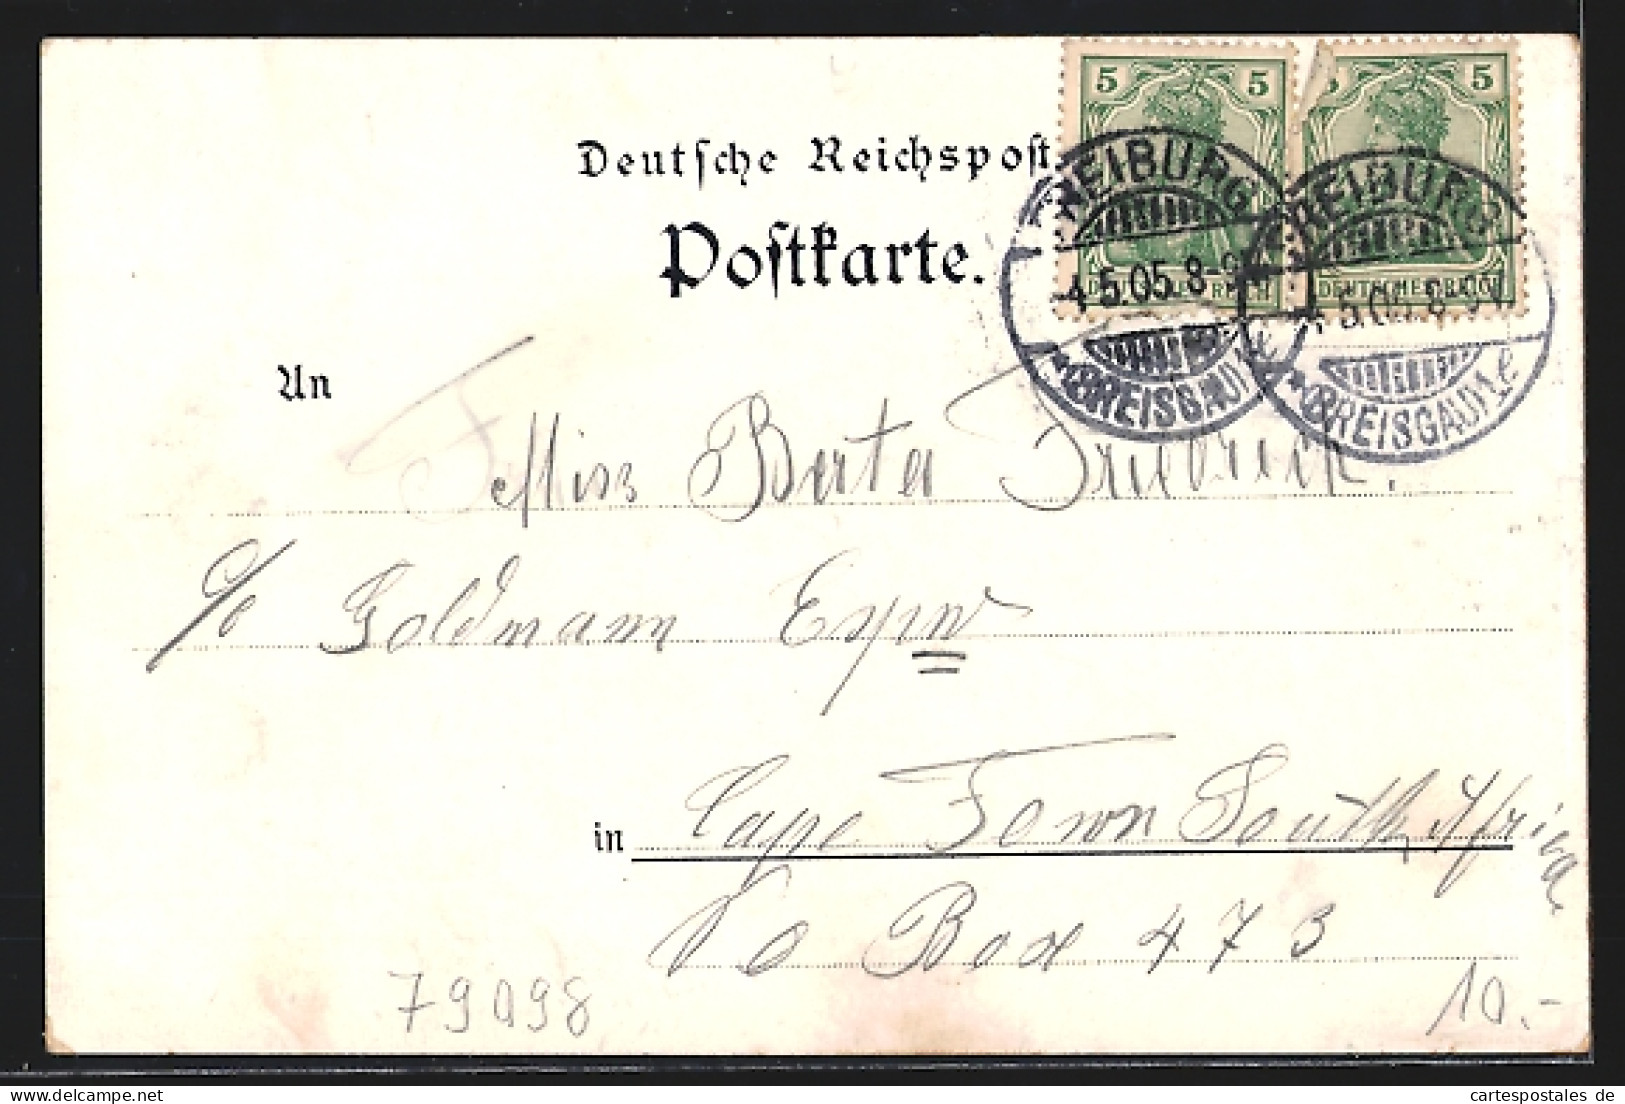 5 5 5
Deutsche Reichspost
Postkarte.
FREIBURG FREIBURG
4.5.05.8-9V 5.05.8-9V
DEUTSCHES REICH DEUTSCHES REICH
*(BREISGAU)1e *(BREISGAU)1e
An Miss Berta Friedrich.
c/o Goldmann
in Cape Town South Africa
Po Box 473
79098 10.-
cartespostales de